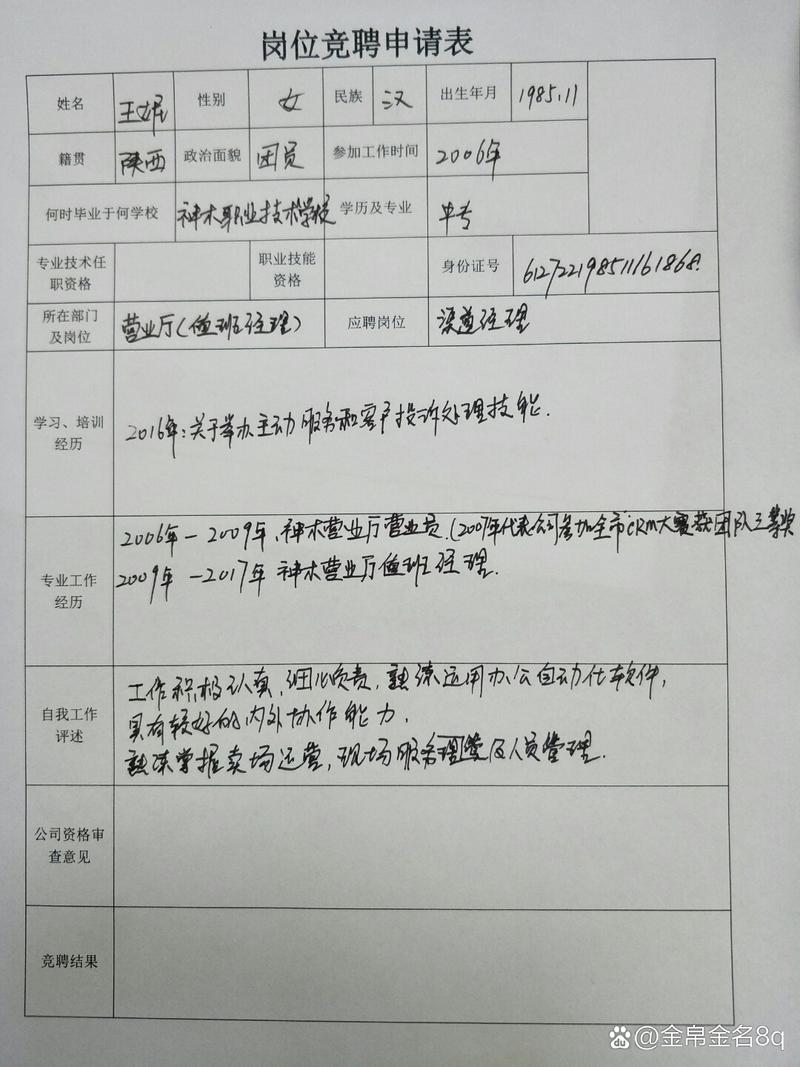 岗位竞聘申请表
姓名 王妮 性别 女 民族 汉 出生年月 1985.11
籍贯 陕西 政治面貌 团员 参加工作时间 2006年
何时毕业于何学校 神木职业技术学校 学历及专业 中专
专业技术任职资格 职业技能资格 身份证号 612722198511161868.
所在部门及岗位 营业厅(值班经理) 应聘岗位 渠道经理
学习、培训经历 2016年:关于举办主动服务和客户投诉处理技能.
专业工作经历
2006年-2009年.神木营业厅营业员.(2007年代表公司参加全市CRM大赛获团队三等奖
2009年-2017年 神木营业厅值班经理.
自我工作评述
工作积极认真,细心负责,熟练运用办公自动化软件,
具有较好的内外协作能力.
熟练掌握卖场运营,现场服务管理及人员管理.
公司资格审查意见
竞聘结果
Bai du @金帛金名8q